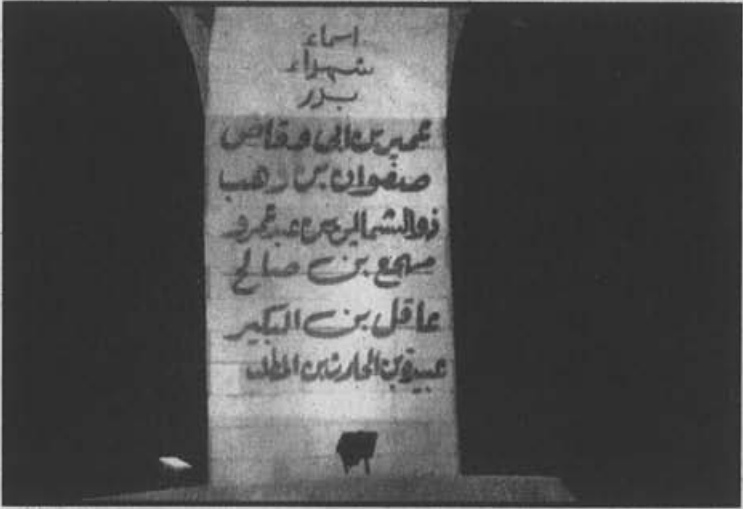 اسماء
شهداء
بدر
عمير بن ابي وقاص
صفوان بن وهب
ذو الشمالين بن عبد عمرو
مهجع بن صالح
عاقل بن البكير
عبيدة بن الحارث بن المطلب